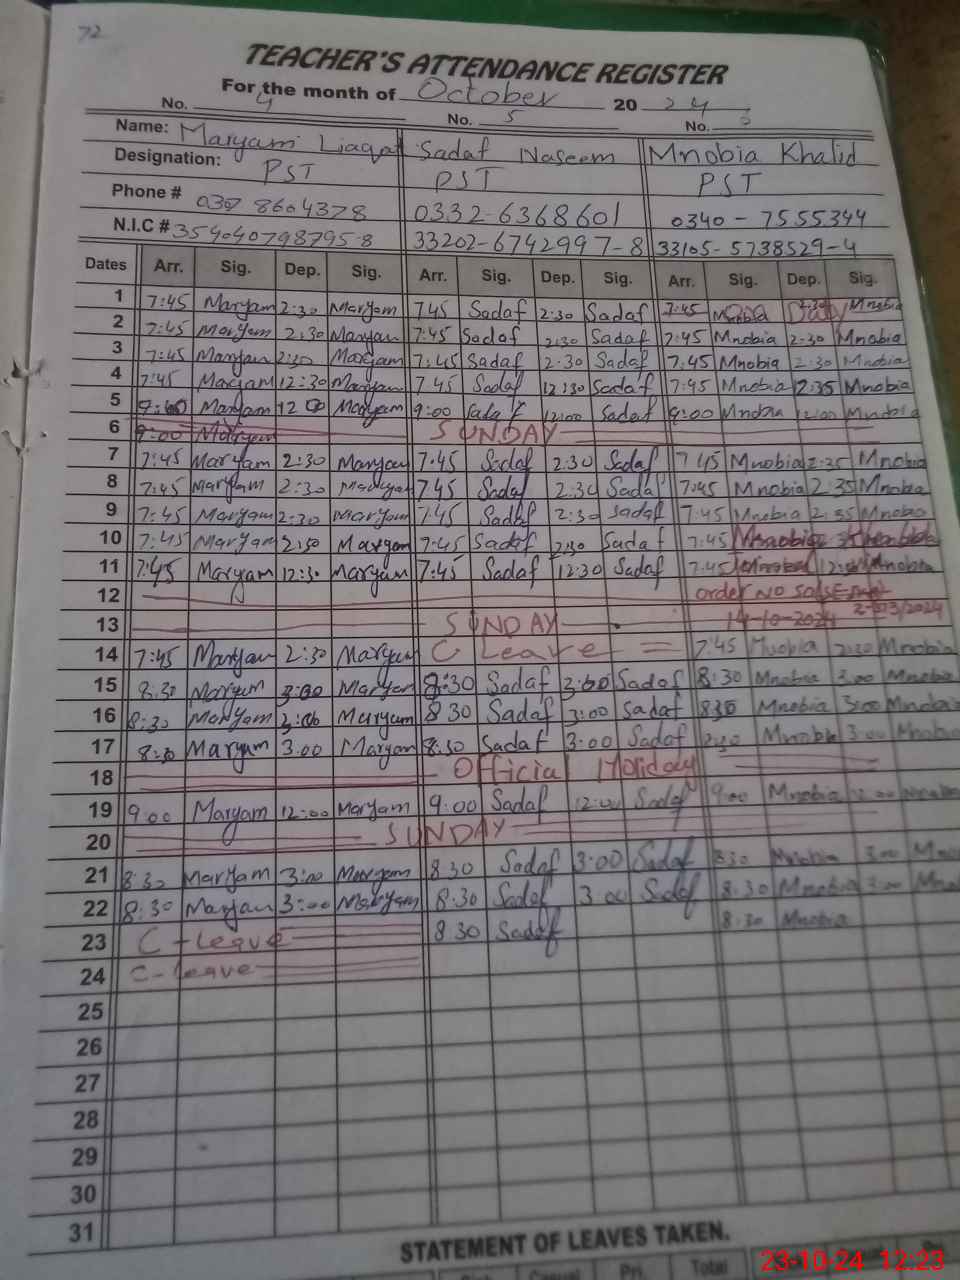 72
TEACHER'S ATTENDANCE REGISTER
For the month of October 20 24
No. 4 No. 5 No. 6
Name: Maryam Liaqat Sadaf Naseem Mnobia Khalid
Designation: PST PST PST
Phone # 0307 8604378 0332-6368601 0340-7555344
N.I.C # 354040798795-8 33202-6742997-8 33105-5738529-4
Dates Arr. Sig. Dep. Sig. Arr. Sig. Dep. Sig. Arr. Sig. Dep. Sig.
1 7:45 Maryam 2:30 Maryam 745 Sadaf 2:30 Sadaf 7:45 Mnobia 2:30 Mnobia
2 7:45 Maryam 2:30 Maryam 7:45 Sadaf 2:30 Sadaf 7:45 Mnobia 2:30 Mnobia
3 7:45 Maryam 2:30 Maryam 7:45 Sadaf 2:30 Sadaf 7:45 Mnobia 2:30 Mnobia
4 7:45 Maryam 12:30 Maryam 7:45 Sadaf 12:30 Sadaf 7:45 Mnobia 2:35 Mnobia
5 9:00 Maryam 12 00 Maryam 9:00 Sadaf 12:00 Sadaf 9:00 Mnobia 12:00 Mnobia
6 9:00 Maryam SUNDAY
7 7:45 Maryam 2:30 Maryam 7:45 Sadaf 2:30 Sadaf 7 45 Mnobia 2:35 Mnobia
8 7:45 Maryam 2:30 Maryam 7.45 Sadaf 2:30 Sadaf 7:45 Mnobia 2:35 Mnobia
9 7:45 Maryam 2:30 Maryam 7:45 Sadaf 2:30 Sadaf 7:45 Mnobia 2:35 Mnobia
10 7:45 Maryam 2:30 Maryam 7:45 Sadaf 2:30 Sadaf 7:45 Mnobia
11 7:45 Maryam 12:30 Maryam 7:45 Sadaf 12:30 Sadaf 7:45 Mnobia
12 order NO
13 SUNDAY 14-10-2024
14 7:45 Maryam 2:30 Maryam C Leave 7:45 Mnobia 2:30 Mnobia
15 8:30 Maryam 3:00 Maryam 8:30 Sadaf 3:00 Sadaf 8:30 Mnobia 3:00 Mnobia
16 8:30 Maryam 3:00 Maryam 8 30 Sadaf 3:00 Sadaf 830 Mnobia 3:00 Mnobia
17 8:30 Maryam 3.00 Maryam 8:30 Sadaf 3:00 Sadaf Mnobia 3:00 Mnobia
18 Official Holiday
19 9:00 Maryam 12:00 Maryam 9:00 Sadaf 12:00 Sadaf 9:00 Mnobia
20 SUNDAY
21 8:30 Maryam 3:00 Maryam 8 30 Sadaf 3:00 Sadaf 8:30 Mnobia 3:00
22 8:30 Maryam 3:00 Maryam 8:30 Sadaf 3 00 Sadaf 8:30 Mnobia 3:00
23 C-Leave 8 30 Sadaf 8:30 Mnobia
24 C-leave
25
26
27
28
29
30
31
STATEMENT OF LEAVES TAKEN.
Casual Pri. Total
23-10-24 12:23